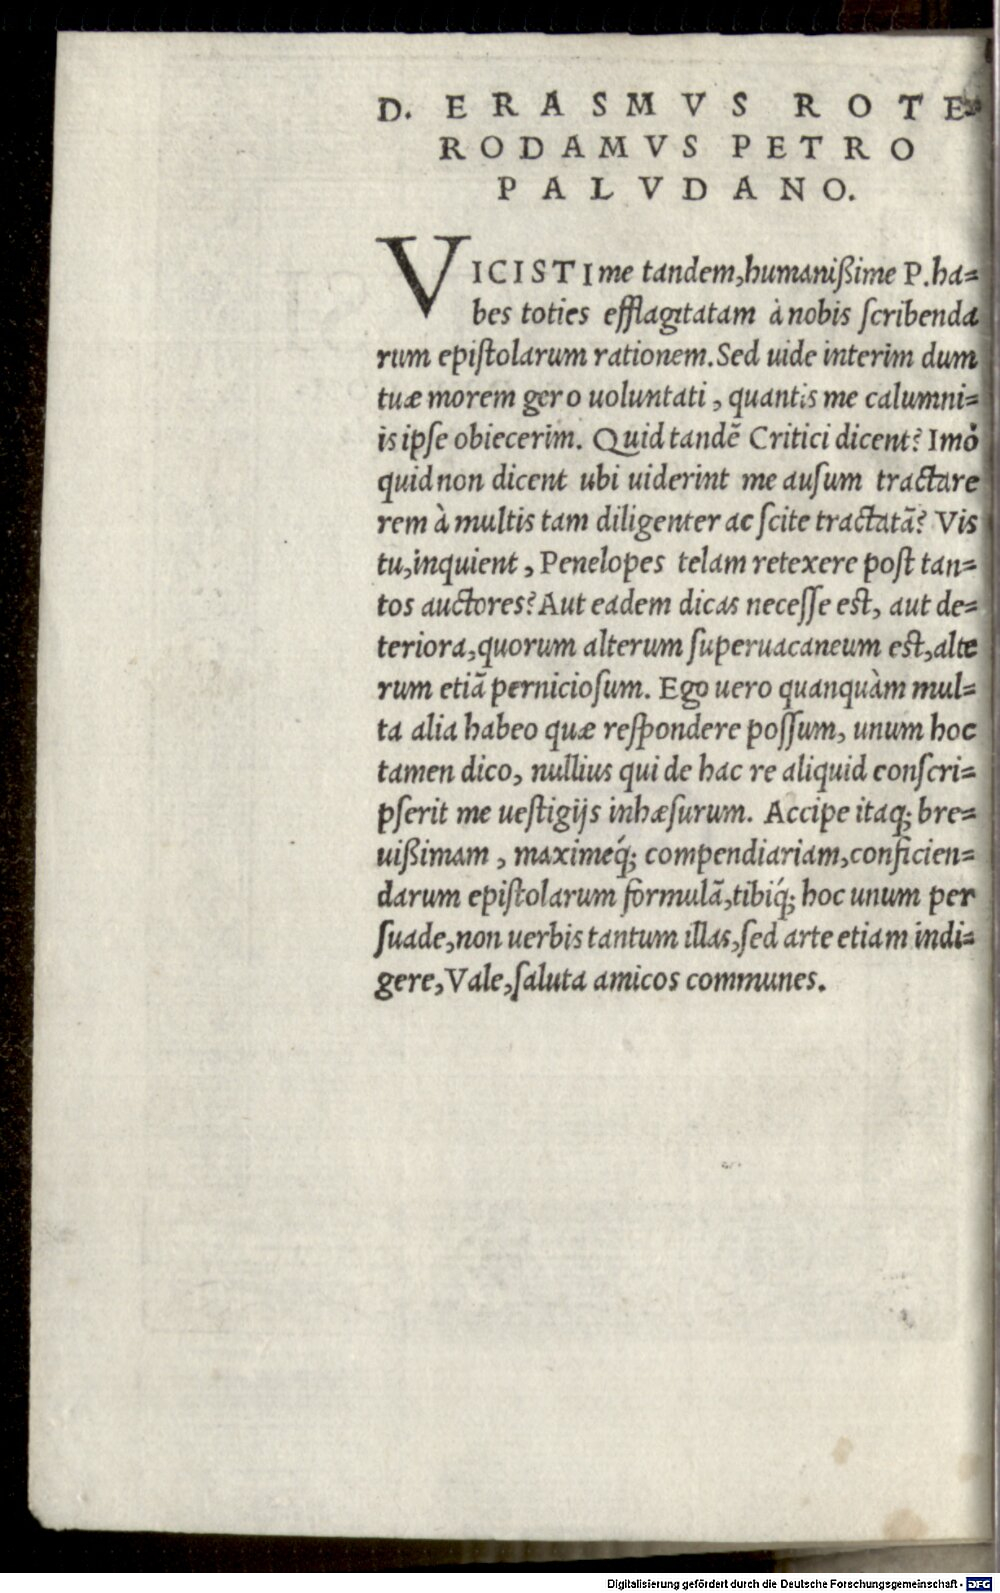 D. ERASMVS ROTE-
RODAMVS PETRO
PALVDANO.
VICISTI me tandem, humanißime P. ha-
bes toties efflagitatam à nobis ſcribenda
rum epiſtolarum rationem. Sed uide interim dum
tuæ morem gero uoluntati, quantis me calumni-
is ipſe obiecerim. Quid tandẽ Critici dicent? Imò
quid non dicent ubi uiderint me auſum tractare
rem à multis tam diligenter ac ſcite tractatã? Vis
tu, inquient, Penelopes telam retexere poſt tan-
tos auctores? Aut eadem dicas neceſſe eſt, aut de-
teriora, quorum alterum ſuperuacaneum eſt, alte
rum etiã pernicioſum. Ego uero quanquàm mul-
ta alia habeo quæ reſpondere poſſum, unum hoc
tamen dico, nullius qui de hac re aliquid conſcri-
pſerit me ueſtigijs inhæſurum. Accipe itaq; bre-
uißimam, maximeq́; compendiariam, conficien-
darum epiſtolarum formulã, tibiq́; hoc unum per
ſuade, non uerbis tantum illas, ſed arte etiam indi-
gere, Vale, ſaluta amicos communes.
Digitalisierung gefördert durch die Deutsche Forschungsgemeinschaft - DFG